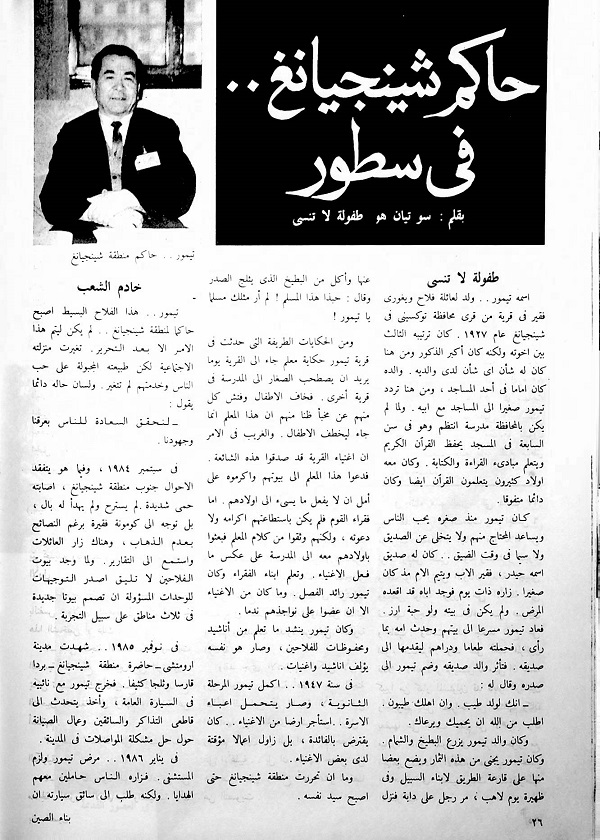 حاكم شينجيانغ ..
فى سطور
بقلم : سو تيان هو طفولة لا تنسى
تيمور . . حاكم منطقة شينجيانغ
طفولة لا تنسى
اسمه تيمور . . ولد لعائلة فلاح ويغورى
فقير فى قرية من قرى محافظة توكسينى فى
شينجيانغ عام ١٩٢٧ . كان ترتيبه الثالث
بين اخوته ولكنه كان أكبر الذكور ومن هنا
كان له شأن اى شأن لدى والديه . والده
كان اماما فى أحد المساجد ، ومن هنا تردد
تيمور صغيرا الى المساجد مع ابيه . ولما لم
يكن بالمحافظة مدرسة انتظم وهو فى سن
السابعة فى المسجد يحفظ القرآن الكريم
ويتعلم مبادىء القراءة والكتابة . وكان معه
اولاد كثيرون يتعلمون القرآن ايضا وكان
دائما متفوقا .
كان تيمور منذ صغره يحب الناس
ويساعد المحتاج منهم ولا يتخلى عن الصديق
ولا سيما فى وقت الضيق . . كان له صديق
اسمه حيدر ، فقير الاب ويتيم الام مذ كان
صغيرا . زاره ذات يوم فوجد اباه قد اقعده
المرض . ولم يكن فى بيته ولو حبة ارز .
فعاد تيمور مسرعا الى بيتهم وحدث امه بما
رأى ، فحملته طعاما ودراهم ليقدمها الى
صديقه . فتأثر والد صديقه وضم تيمور الى
صدره وقال له :
ــ انك لولد طيب . وان اهلك طيبون .
اطلب من الله ان يحميك ويرعاك .
وكان والد تيمور يزرع البطيخ والشمام .
وكان تيمور يجنى من هذه الثمار ويضع بعضا
منها على قارعة الطريق لابناء السبيل وفى
ظهيرة يوم لاهب ، مر رجل على دابة فنزل
عنها وأكل من البطيخ الذى يثلج الصدر
وقال : حبذا هذا المسلم ! لم أر مثلك مسلما
يا تيمور !
ومن الحكايات الطريفة التى حدثت فى
قرية تيمور حكاية معلم جاء الى القرية يوما
يريد ان يصطحب الصغار الى المدرسة فى
قرية أخرى . فخاف الاطفال وفتش كل
منهم عن مخبأ ظنا منهم ان هذا المعلم انما
جاء ليخطف الاطفال . والغريب فى الامر
ان اغنياء القرية قد صدقوا هذه الشائعة .
فدعوا هذا المعلم الى بيوتهم واكرموه على
أمل ان لا يفعل ما يسىء الى اولادهم . اما
فقراء القوم فلم يكن باستطاعتهم اكرامه ولا
دعوته ، ولكنهم وثقوا من كلام المعلم فبعثوا
باولادهم معه الى المدرسة على عكس ما
فعل الاغنياء . وتعلم ابناء الفقراء وكان
تيمور رائد الفصل . وما كان من الاغنياء
الا ان عضوا على نواجذهم ندما .
وكان تيمور ينشد ما تعلم من أناشيد
ومحفوظات للفلاحين ، وصار هو نفسه
يؤلف اناشيد واغنيات .
فى سنة ١٩٤٧ . . اكمل تيمور المرحلة
الثانوية ، وصار يتحمل اعباء
الاسرة . . استأجر ارضا من الاغنياء . . كان
يقترض بالفائدة ، بل زاول اعمالا مؤقتة
لدى بعض الاغنياء .
وما ان تحررت منطقة شينجيانغ حتى
اصبح سيد نفسه .
خادم الشعب
تيمور . . هذا الفلاح البسيط اصبح
حاكما لمنطقة شينجيانغ . . لم يكن ليتم هذا
الامر الا بعد التحرير . تغيرت منزلته
الاجتماعية لكن طبيعته المجبولة على حب
الناس وخدمتهم لم تتغير . ولسان حاله دائما
يقول :
ــ لنحقق السعادة للناس بعرقنا
وجهودنا .
فى سبتمبر ١٩٨٤ ، وفيما هو يتفقد
الاحوال جنوب منطقة شينجيانغ ، اصابته
حمى شديدة . لم يسترح ولم يهدأ له بال ،
بل توجه الى كومونة فقيرة برغم النصائح
بعدم الذهاب ، وهناك زار العائلات
واستمع الى التقارير . ولما وجد بيوت
الفلاحين لا تليق اصدر التوجيهات
للوحدات المسؤولة ان تصمم بيوتا جديدة
فى ثلاث مناطق على سبيل التجربة .
فى نوفمبر ١٩٨٥ . . شهدت مدينة
ارومتشى ــ حاضرة منطقة شينجيانغ ــ بردا
قارسا وثلجا كثيفا . فخرج تيمور مع نائبيه
فى السيارة العامة ، وأخذ يتحدث الى
قاطعى التذاكر والسائقين وعمال الصيانة
حول حل مشكلة المواصلات فى المدينة .
فى يناير ١٩٨٦ . . مرض تيمور ولزم
المستشفى . فزاره الناس حاملين معهم
الهدايا . ولكنه طلب الى سائق سيارته ان
٢٦
بناء الصين